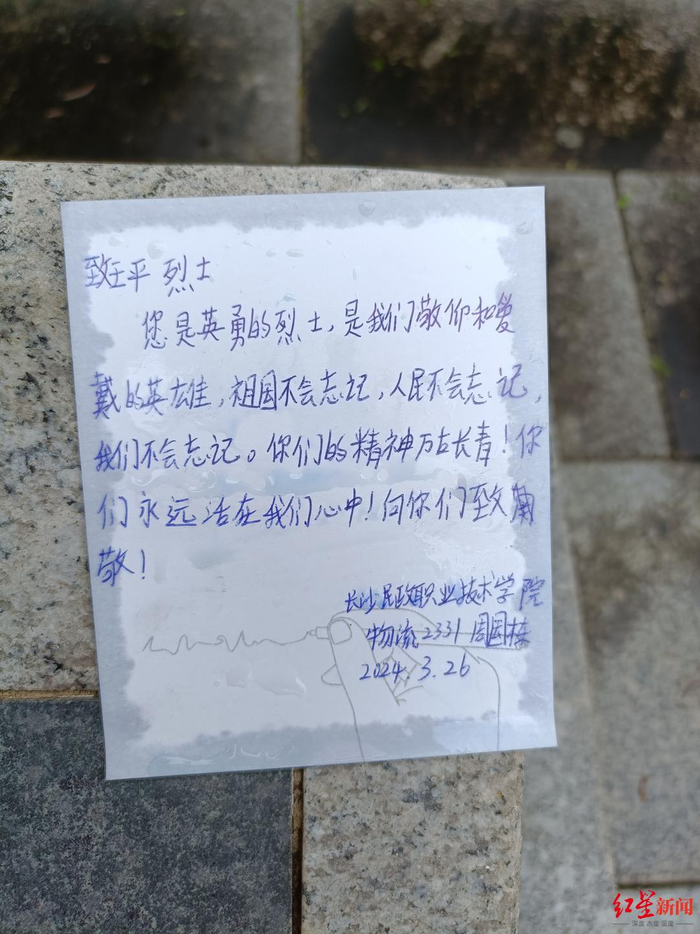 致王平 烈士
您是英勇的烈士，是我们敬仰和爱
戴的英雄，祖国不会忘记，人民不会忘记，
我们不会忘记。你们的精神万古长青！你
们永远活在我们心中！向你们致
敬！
长沙民政职业技术学院
物流2331 周国
2024.3.26
红星新闻
深度 态度 温度